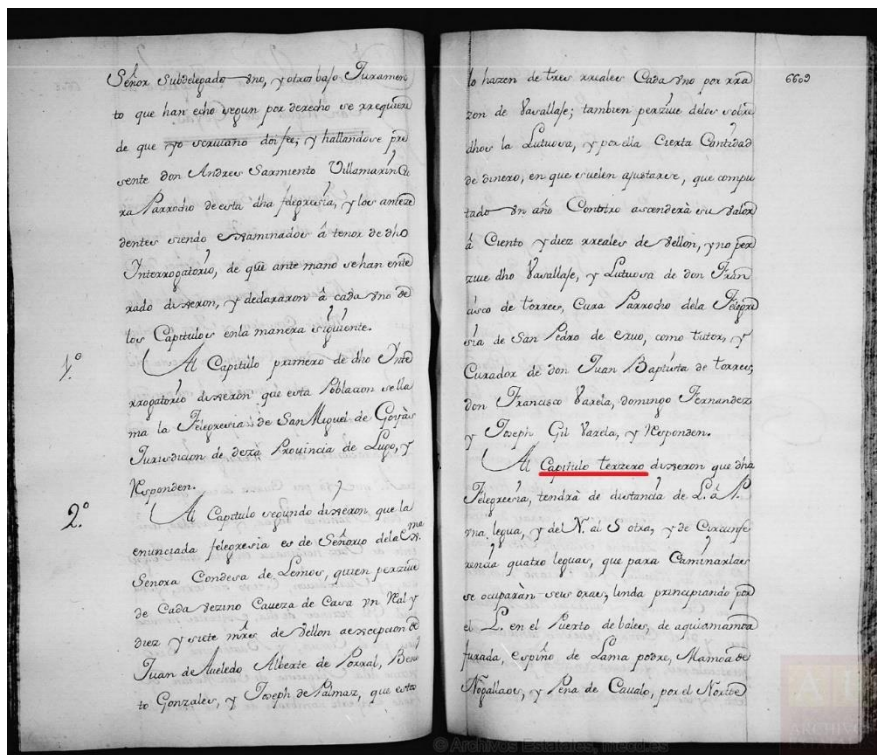 Señor Subdelegado uno, y otros bajo Juramen
to que han echo segun por derecho se rrequiere
de que yo scriuano doi fee; y hallandose pre
sente don Andres Sarmiento Villamarin Cu
ra Parrocho de esta dha felegresia, y los anteze
dentes siendo esxaminados â tenor de dho
Interrogatorio, de que ante mano se han ente
rado dixeron, y declararon â cada uno de
los Capitulos en la manera siguiente.
1.º
Al Capitulo primero de dho Inte
rrogatorio dixeron que esta Poblacion se lla
ma la Felegresia de San Miguel de Goyás
Jurisdicion de deza Prouincia de Lugo, y
Responden.
2.º
Al Capitulo segundo dixeron que la
enunciada felegresia es de Señorio de la Exma
Senora Condesa de Lemos, quien perziue
de Cada vezino Caueza de Casa un Real y
diez y siete mrs de vellon aexcepcion de
Juan de Aueledo Alberte de Porral, Beni
to Gonzales, y Joseph de Palmaz, que estos
6603
lo hazen de tres rreales Cada uno por rra
zon de Vasallaje; tambien perziue de los sobre
dhos la Lutuosa, y por ella Cierta Cantidad
de dinero, en que suelen ajustarse, que compu
tado un año Con otro ascenderà su valor
â Ciento y diez rreales de vellon, y no per
ziue dho Vasallaje, y Lutuosa de don Fran
cisco de torres, Cura Parrocho de la Felegre
sia de San Pedro de , como tutor, y
Curador de don Juan Baptista de torres,
don Francisco Varela, domingo Fernandez
y Joseph Gil Varela, y Responden.
Al Capitulo terzero dixeron que dha
Felegresia, tendrà de distancia de L. â P.
una legua, y de N. al S otra, y de Circunfe
rencia quatro leguas, que para Caminarlas
se ocuparàn seis oras, linda principiando por
el L. en el Puerto de bales, de aqui a mamoa
furada, espiño de Lama podre, Mamoa de
Nogallaos, y Pena de Caualo, por el Norte
© Archivos Estatales, mecd.es